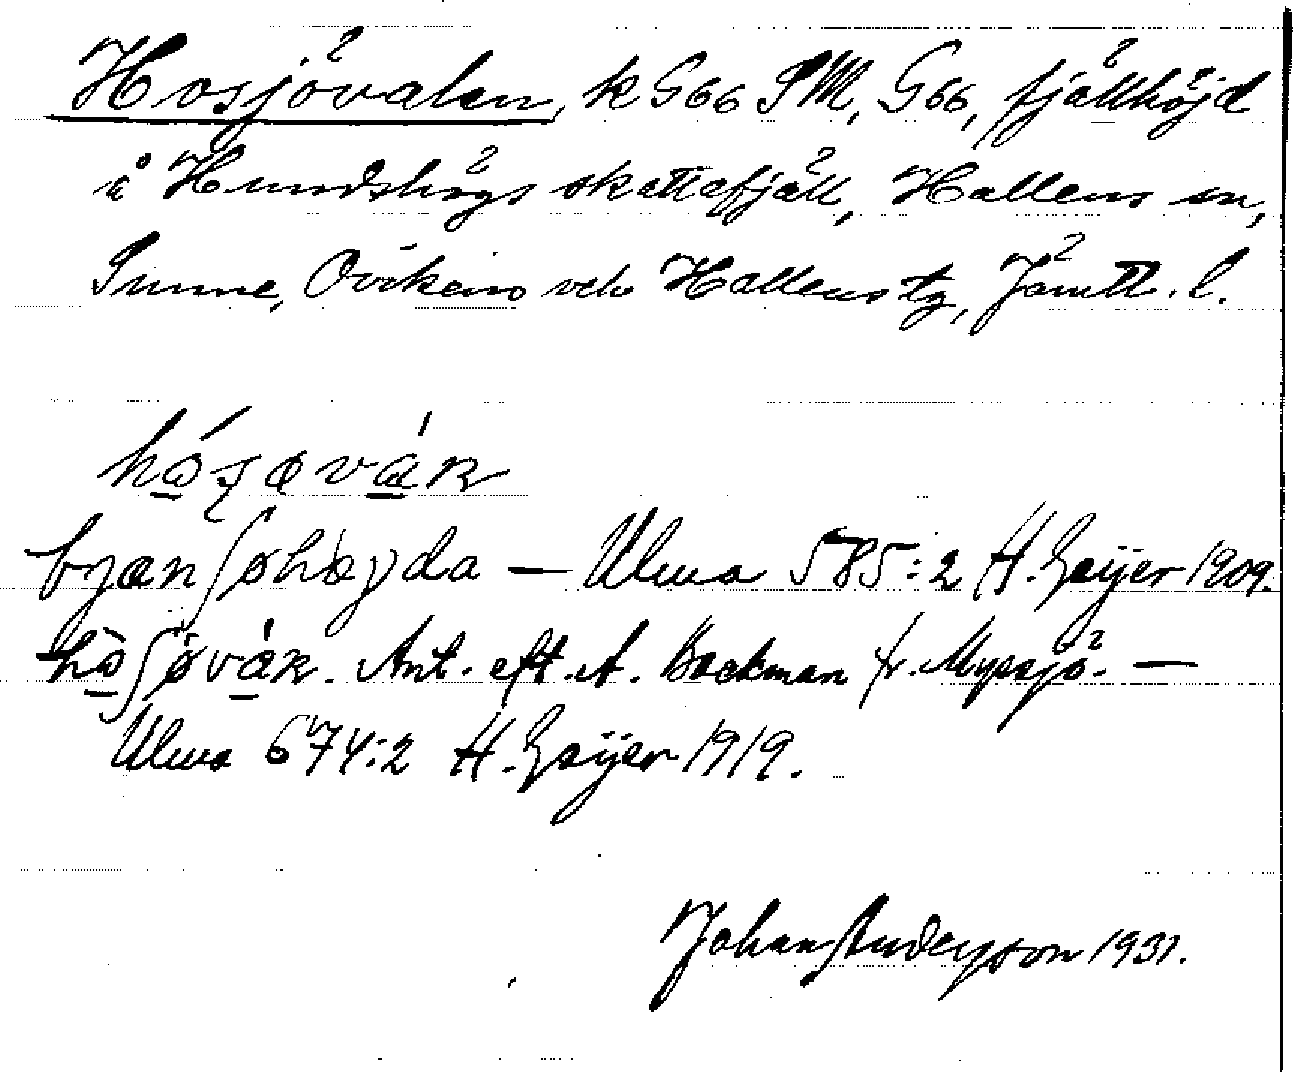 Hosjövalen, k G66 SM, G66, fjällhöjd
i Hundshögs skattefjäll, Hallens sn,
Sunne, Ovikens och Hallens tg, Jämtl. l.
bjænʃøhøyda — Ulma 585:2 H. Geijer 1909.
Ant. eft. A. Backman fr. Myssjö. —
Ulma 674:2 H. Geijer 1919.
Johan Anderzson 1931.